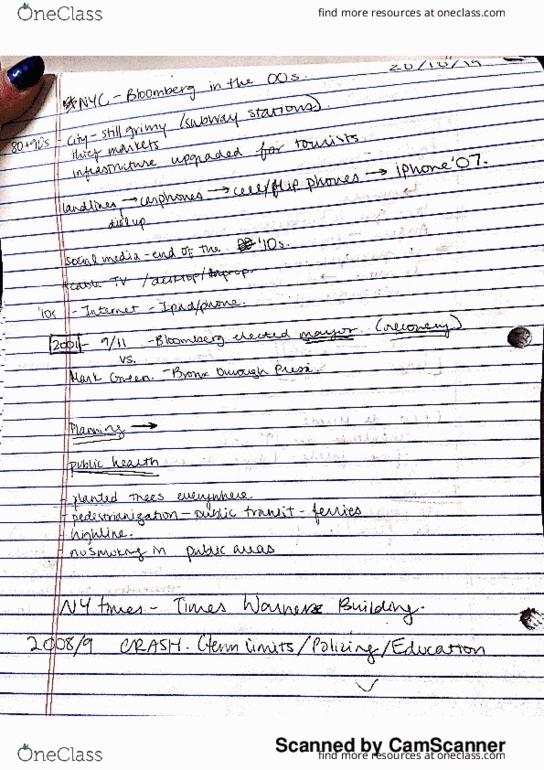 OneClass
find more resources at oneclass.com
20/10/19
*NYC - Bloomberg in the 00s.
80+90s - City - still grimy (subway stations)
thief markets
infrastructure upgraded for tourists.
landlines → carphones → cell/flip phones → iphone '07.
dial up
social media - end of the '10s.
cable TV / desktop /
'10s - Internet - Ipad/phone.
2001 - 9/11 - Bloomberg elected mayor. (recovery)
vs.
Mark Green. - Bronx Borough Pres.
Planning →
public health
- planted trees everywhere.
- pedestrianization - public transit - ferries
- highline.
- no smoking in public areas
NY times - Times Warner Building.
2008/9 CRASH. (term limits / Policing / Education
Scanned by CamScanner
OneClass
find more resources at oneclass.com